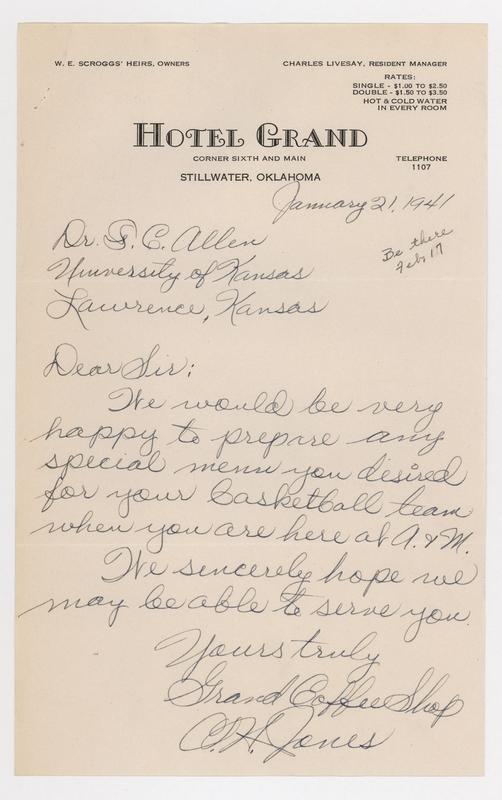 W. E. SCROGGS' HEIRS, OWNERS
CHARLES LIVESAY, RESIDENT MANAGER
RATES:
SINGLE - $1.00 TO $2.50
DOUBLE - $1.50 TO $3.50
HOT & COLD WATER
IN EVERY ROOM
HOTEL GRAND
CORNER SIXTH AND MAIN
TELEPHONE
1107
STILLWATER, OKLAHOMA
January 21, 1941
Be there
Feb 17
Dr. F. C. Allen
University of Kansas
Lawrence, Kansas
Dear Sir:
We would be very
happy to prepare any
special menu you desired
for your basketball team
when you are here at A. & M.
We sincerely hope we
may be able to serve you.
Yours truly
Grand Coffee Shop
C. H. Jones